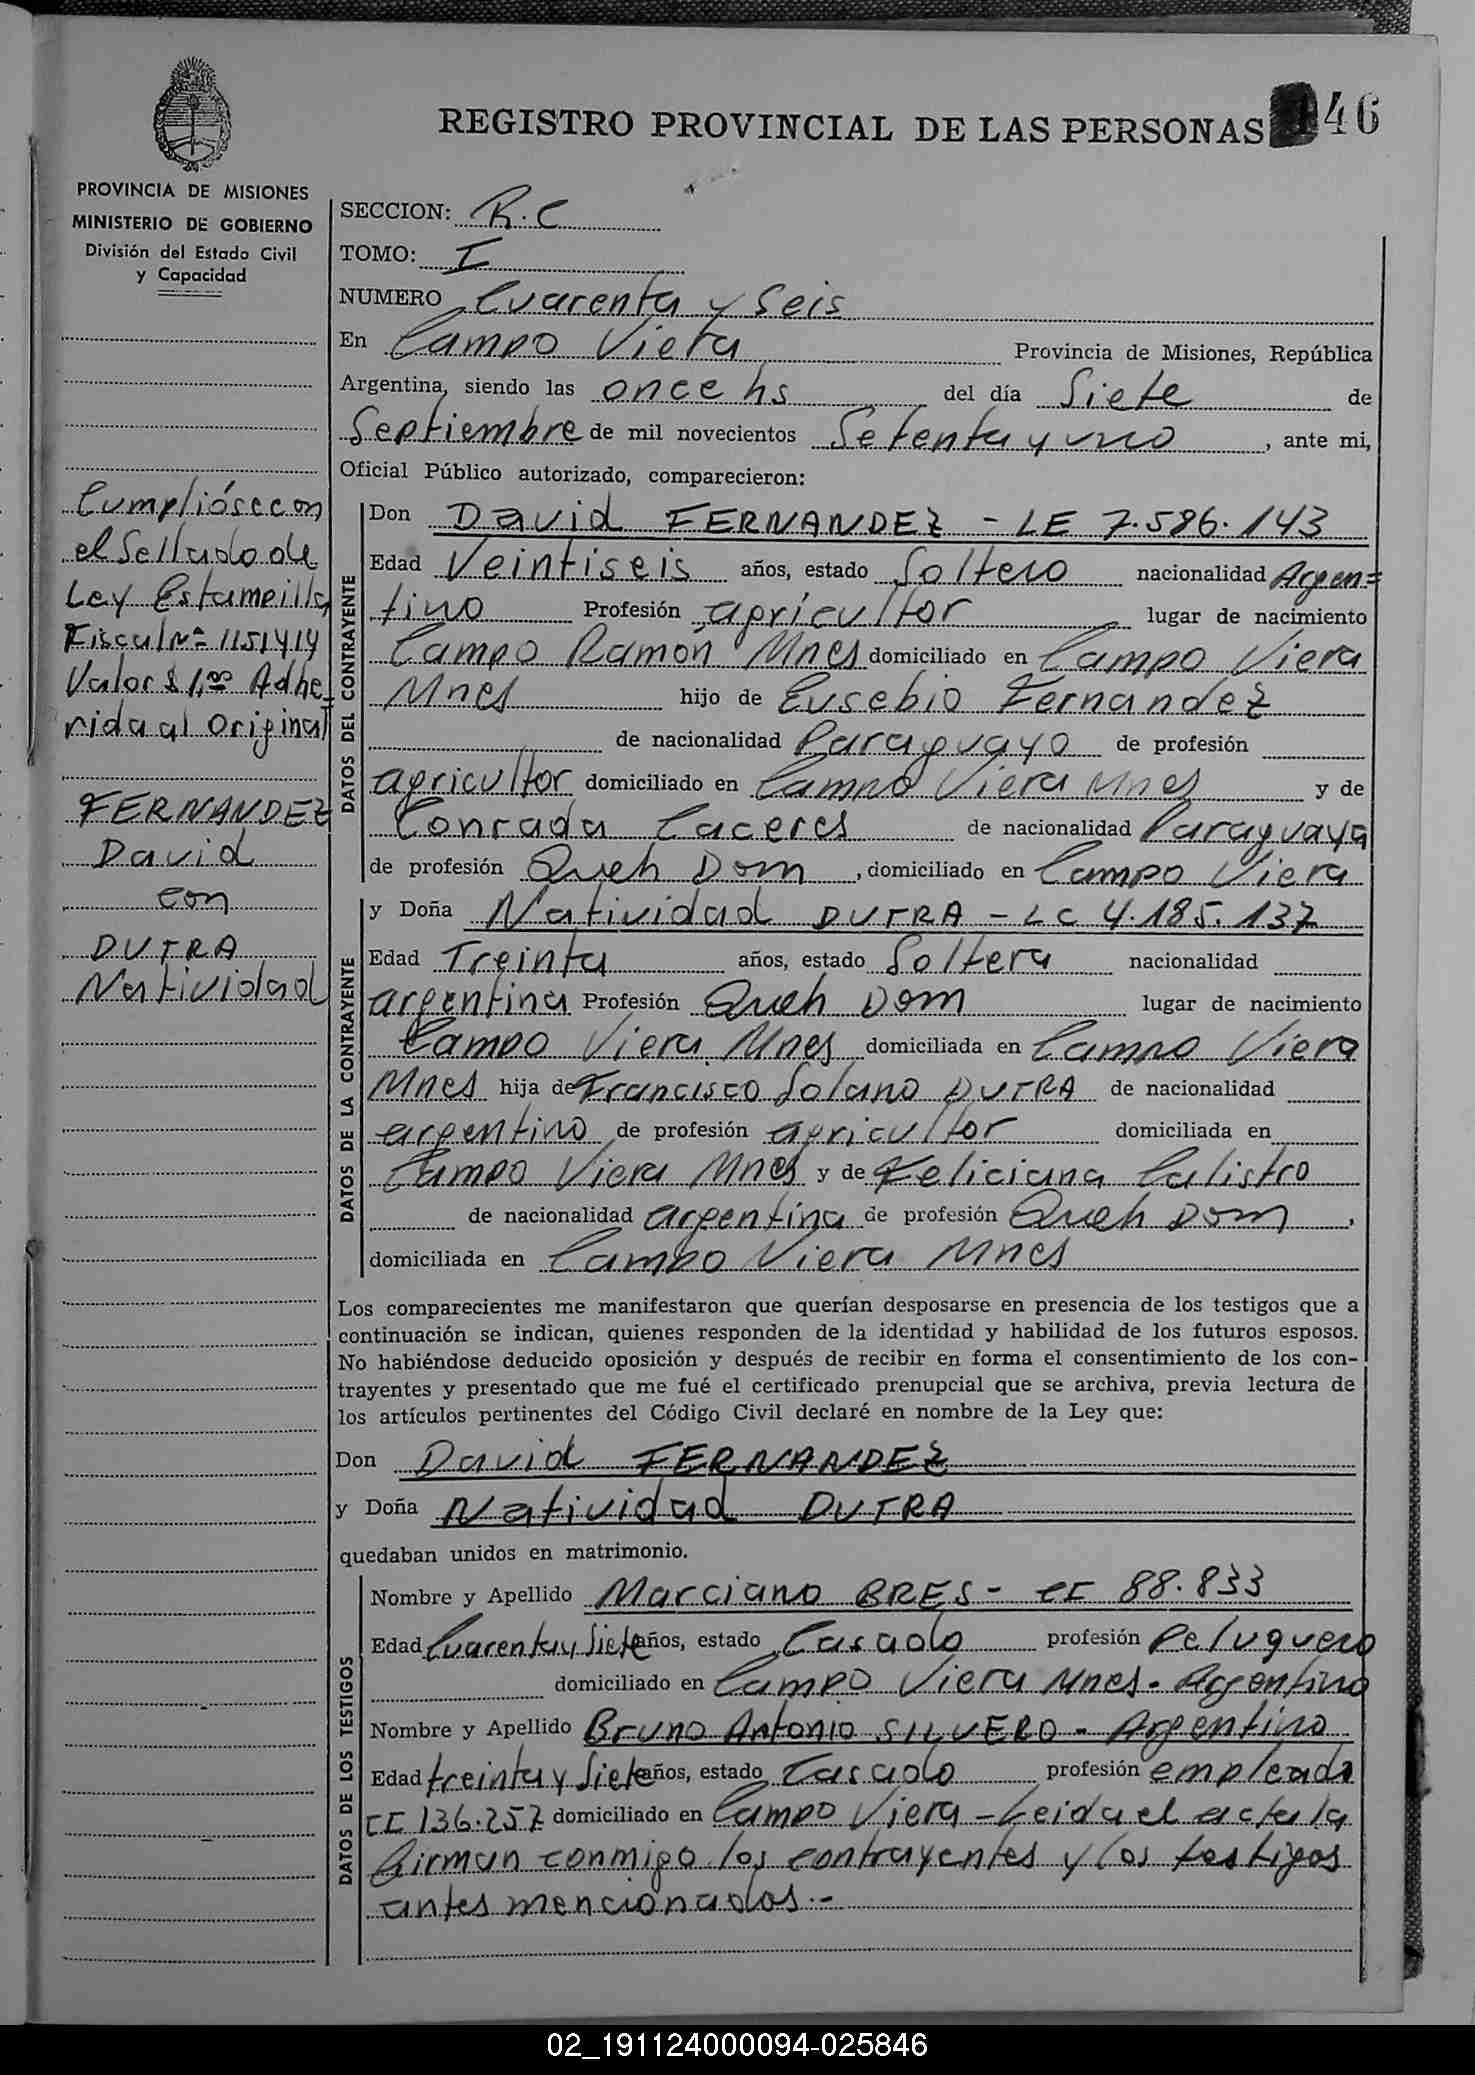 REGISTRO PROVINCIAL DE LAS PERSONAS 46
PROVINCIA DE MISIONES
MINISTERIO DE GOBIERNO
División del Estado Civil
y Capacidad
Cumplióse con
el Sellado de
Ley Estampilla
Fiscal Nº 1151414
Valor $ 1,00 Adhe=
rida al Original
FERNANDEZ
David
con
DUTRA
Natividad
SECCION: R.C
TOMO: I
NUMERO Cuarenta y Seis
En Campo Viera Provincia de Misiones, República
Argentina, siendo las once hs del día Siete de
Septiembre de mil novecientos Setenta y uno, ante mi,
Oficial Público autorizado, comparecieron:
DATOS DEL CONTRAYENTE
Don David FERNANDEZ - LE 7.586.143
Edad Veintiseis años, estado Soltero nacionalidad Argen=
tino Profesión agricultor lugar de nacimiento
Campo Ramón Mnes domiciliado en Campo Viera
Mnes hijo de Eusebio Fernandez
de nacionalidad Paraguayo de profesión
agricultor domiciliado en Campo Viera Mnes y de
Conrada Caceres de nacionalidad Paraguaya
de profesión Queh Dom, domiciliado en Campo Viera
DATOS DE LA CONTRAYENTE
y Doña Natividad DUTRA - LC 4.185.137
Edad Treinta años, estado Soltera nacionalidad
argentina Profesión Queh Dom lugar de nacimiento
Campo Viera Mnes domiciliada en Campo Viera
Mnes hija de Francisco Solano DUTRA de nacionalidad
argentino de profesión agricultor domiciliada en
Campo Viera Mnes y de Feliciana Calistro
de nacionalidad argentina de profesión Queh Dom,
domiciliada en Campo Viera Mnes
Los comparecientes me manifestaron que querían desposarse en presencia de los testigos que a
continuación se indican, quienes responden de la identidad y habilidad de los futuros esposos.
No habiéndose deducido oposición y después de recibir en forma el consentimiento de los con-
trayentes y presentado que me fué el certificado prenupcial que se archiva, previa lectura de
los artículos pertinentes del Código Civil declaré en nombre de la Ley que:
Don David FERNANDEZ
y Doña Natividad DUTRA
quedaban unidos en matrimonio.
DATOS DE LOS TESTIGOS
Nombre y Apellido Marciano BRES - CI 88.833
Edad Cuarenta y Siete años, estado Casado profesión Peluquero
domiciliado en Campo Viera Mnes. Argentino
Nombre y Apellido Bruno Antonio SILVERO - Argentino
Edad treinta y Siete años, estado Casado profesión empleado
CI 136.257 domiciliado en Campo Viera - Leida el acta la
firman conmigo los contrayentes y los testigos
antes mencionados.-
02_191124000094-025846